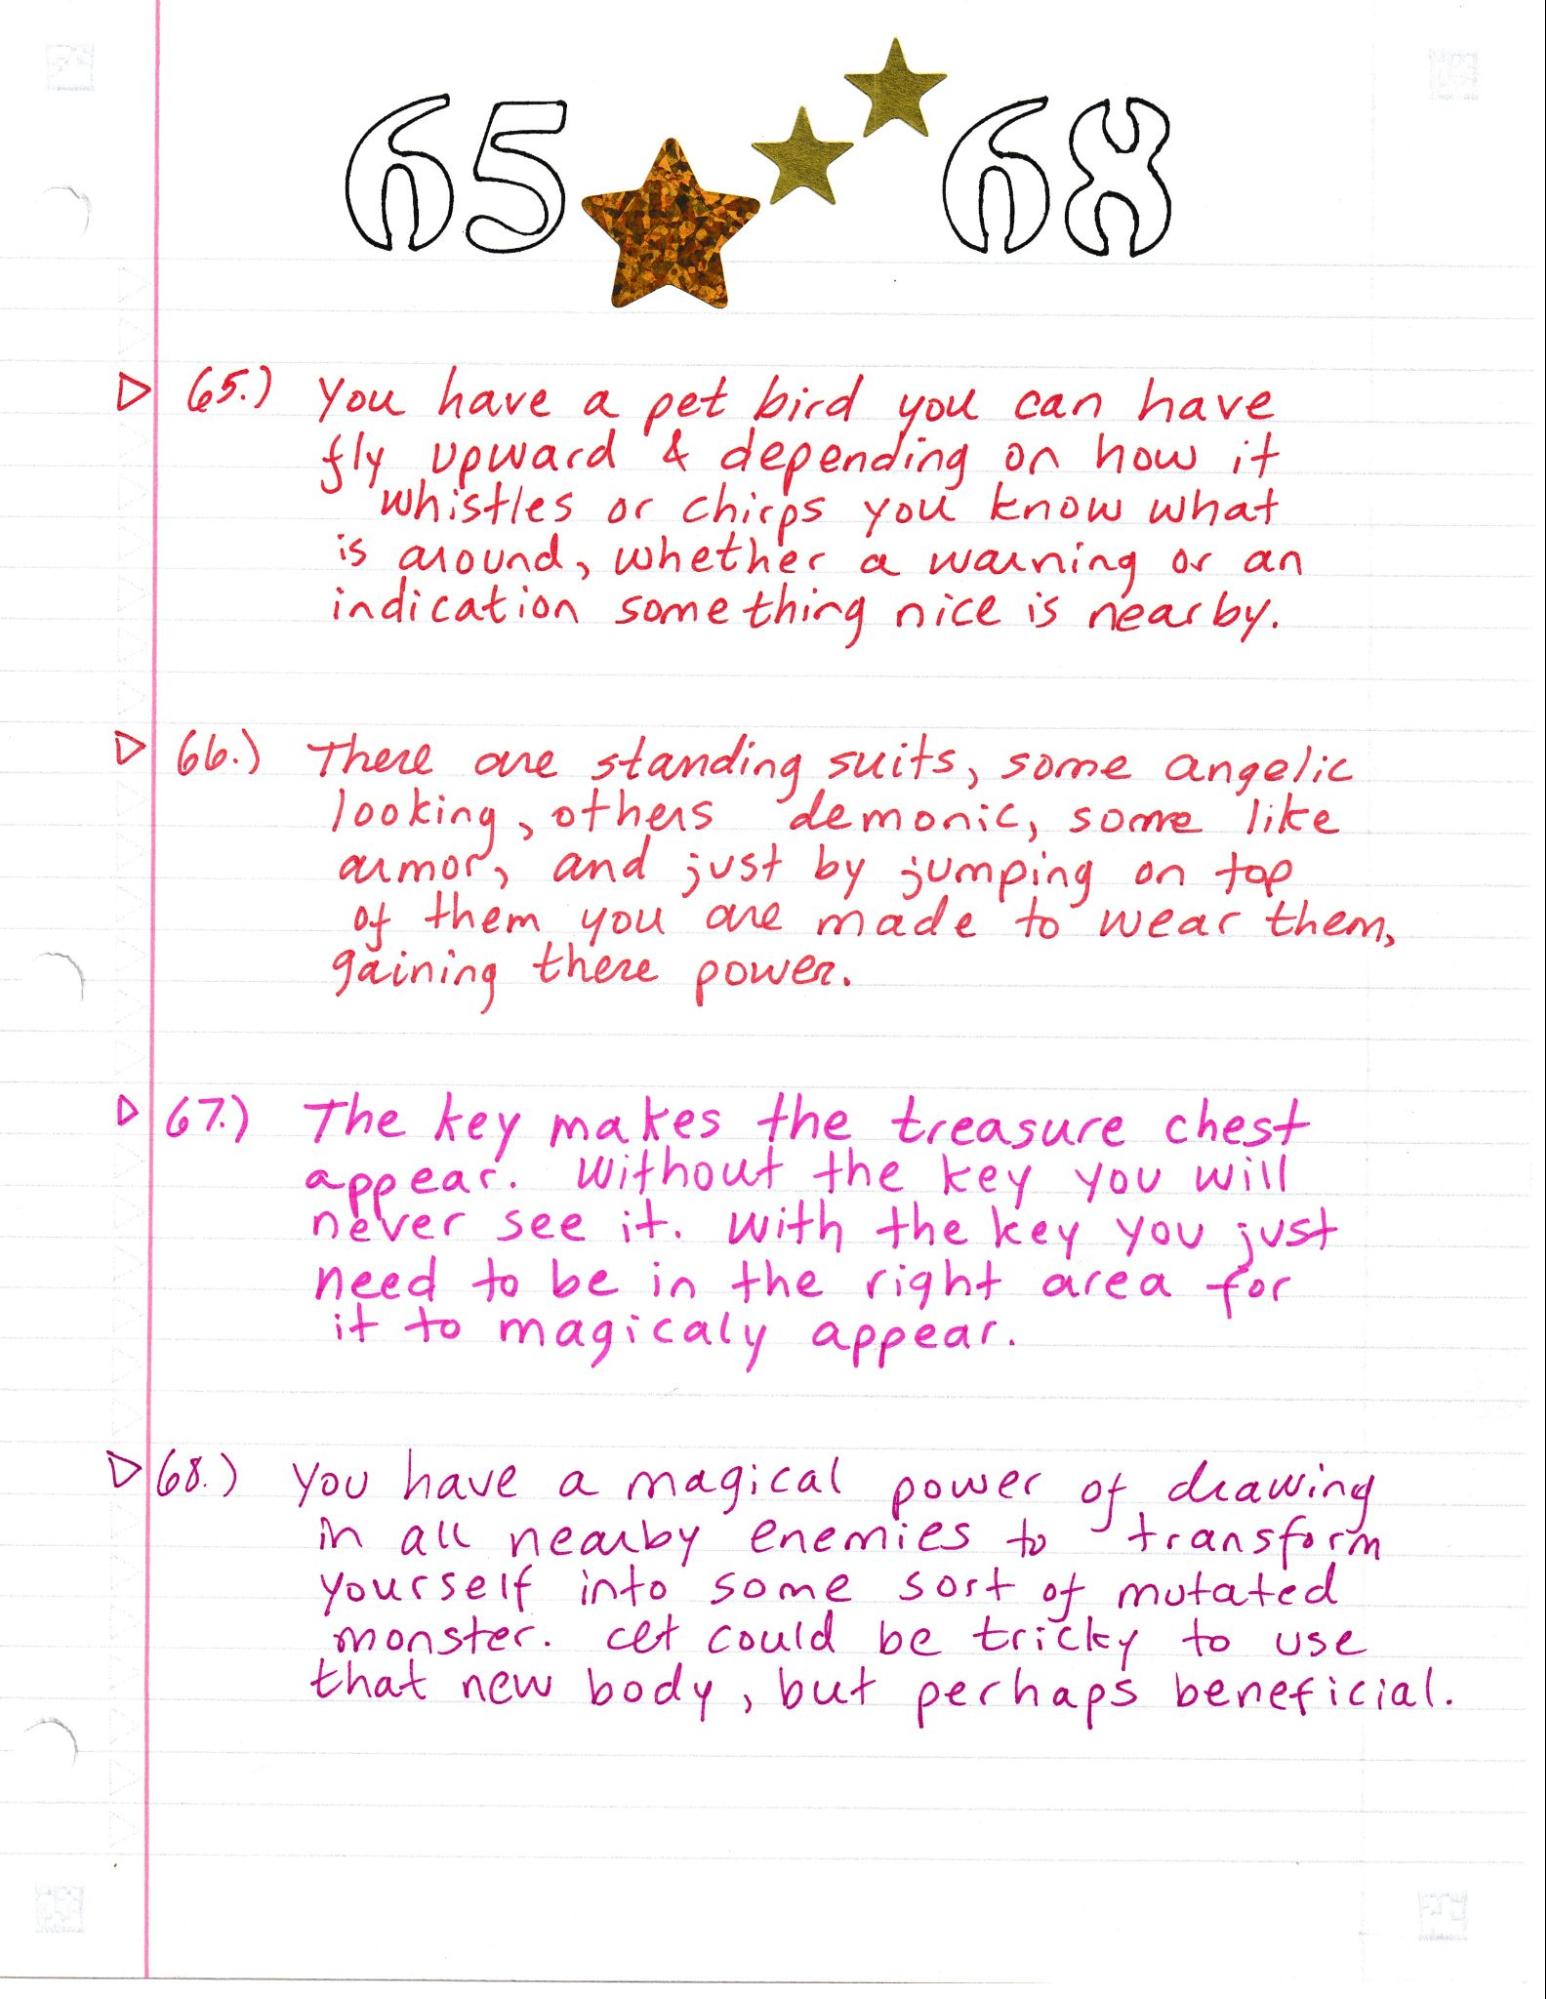 65 68
65.) You have a pet bird you can have
fly upward & depending on how it
whistles or chirps you know what
is around, whether a warning or an
indication something nice is nearby.
66.) There are standing suits, some angelic
looking, others demonic, some like
armor, and just by jumping on top
of them you are made to wear them,
gaining there power.
67.) The key makes the treasure chest
appear. Without the key you will
never see it. With the key you just
need to be in the right area for
it to magicaly appear.
68.) You have a magical power of drawing
in all nearby enemies to transform
yourself into some sort of mutated
monster. could be tricky to use
that new body, but perhaps beneficial.